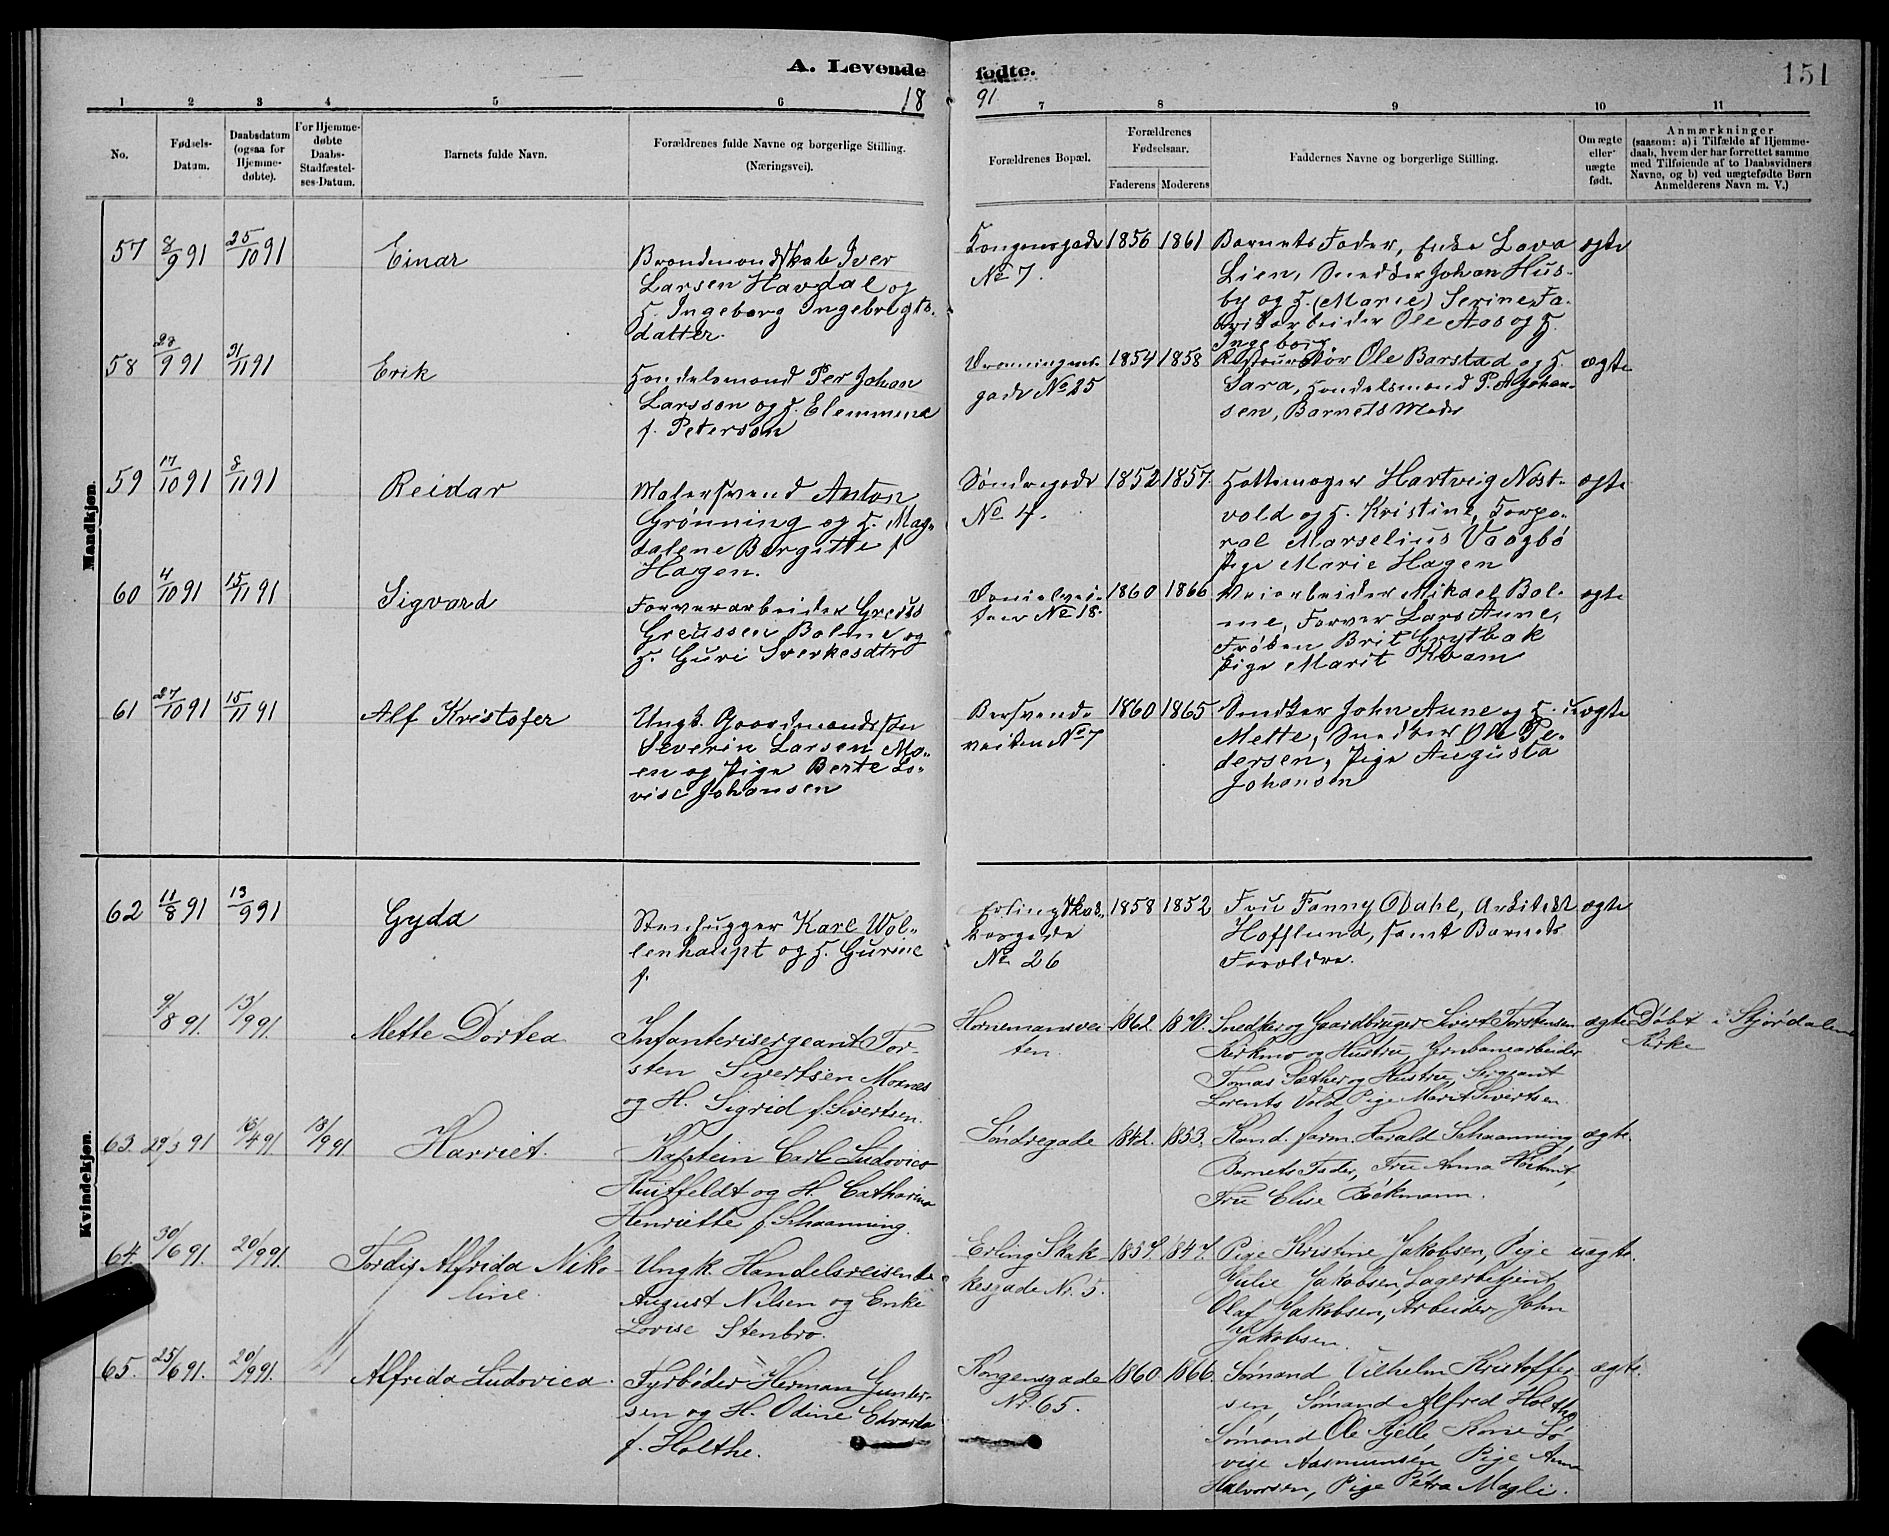 A. Levende fødte. 151
18 91
1 2 3 4 5 6 7 8 9 10 11
No.
Fødsels-
Datum.
Daabsdatum
(ogsaa for
Hjemme-
døbte).
For Hjemme-
døbte
Daabs-
Stadfæstel-
ses-Datum.
Barnets fulde Navn.
Forældrenes fulde Navne og borgerlige Stilling.
(Næringsvei).
Forældrenes Bopæl.
Forældrenes
Fødselsaar.
Faderens Moderens
Faddernes Navne og borgerlige Stilling.
Om ægte
eller
uægte
født.
Anmærkninger
(saasom: a) i Tilfælde af Hjemme-
daab, hvem der har forrettet samme
med Tilføiende af to Daabsvidners
Navne, og b) ved uægtefødte Børn
Anmelderens Navn m. V.)
Mandkjøn.
57 8/9 91 25/10 91 Einar
Brandmandskab Iver
Larsen Havdal og
H. Ingeborg Ingebrigts-
datter.
Kongensgade
No 7.
1856 1861
Barnets Fader, Enke Lava
Lien, Snedker Johan Hus-
by og H. (Marie) Serine, Fa-
brikarbeider Ole Aas og H.
Ingeborg
ægte
58 9 91 11 91 Erik
Handelsmand Per Johan
Larsson og H. Elemmina
f. Peterson
Dronningens-
gade No 25
1854 1858
Restauratør Ole Barstad og H.
Sara, Handelsmand P. A. Johan-
sen, Barnets Moder
ægte
59 17/10 91 8/11 91 Reidar
Malersvend Anton
Grønning og H. Mag-
dalene Bergitte f
Hagen.
Søndregade
No 4.
1852 1857
Hattemager Hartvig Nøst-
vold og H. Kristine, Korpo-
ral Marselius Vaagbø
Pige Marie Hagen
ægte
60 4/10 91 15/11 91 Sigvard
Farverarbeider Greius
Greiussen Bolme og
H. Guri Sverkesdtr
Danielsvei-
ten No 18.
1860 1866
Veiarbeider Mikael Bol-
me, Farver Lars Aune,
Frøken Brit Grytbak
Pige Marit Kvam
ægte
61 27/10 91 15/11 91 Alf Kristofer
Ungk. Gaardmandssøn
Severin Larsen Mo-
en og Pige Berte Lo-
vise Johansen
Bersvends
veiten No 7
1860 1865
Snedker John Aune og H.
Mette, Snedker Ole Pe-
dersen, Pige Augusta
Johansen
uægte
Kvindekjøn.
62 11/8 91 13/9 91 Gyda
Stenhugger Karl Wol-
lenhaupt og H. Gurine
f.
Erling Skak-
kesgade
No 26
1858 1852
Fru Fanny Dahl, Arkitekt
Hofflund, samt Barnets
Forældre.
ægte
9/8 91. 13/9 91. Mette Dortea
Infanterisergeant Tor-
sten Sivertsen Moxnes
og H. Sigrid f. Sivertsen.
Hornemansvei
ten.
1862.
Snedker og Gaardbruger Sivert Torstensen
Kirkmo og Hustru, Jernbanearbeider
Tomas Sæther og Hustru, Sergeant
Lorents Vold, Pige Marit Sivertsen
ægte
Døbt i Stjørdalens
Kirke
63. 19/3 91 16/4 91 18/9 91 Harriet.
Kaptein Carl Ludovico
Huitfeldt og H. Catharina
Henriette f Schaanning.
Søndregade
1842. 1853.
Kand. farm. Harald Schaanning,
Barnets Fader, Fru Anna
Fru Elise Bøckmann.
ægte.
64. 30/6 91. 20/9 91. Tordis Alfrida Niko-
line.
Ungk. Handelsreisende
August Nilsen og Enke
Lovise Stenbro.
Erling Skak-
kesgade Nr. 5.
1857. 1847.
Pige Kristine Jakobsen, Pige
Julie Jakobsen, Lagerbetjent
Olaf Jakobsen, Arbeider John
Jakobsen.
uægte.
65. 25/6 91. 20/9 91. Alfrida Ludovica.
Fyrbøder Herman Gunder-
sen og H. Odine Edvarda
f. Holthe.
Kongensgade
Nr. 65.
1860. 1866.
Sømand Vilhelm Kristoffer-
sen, Sømand Alfred Holthe
Sømand Ole Fjelle Kone Lo-
vise Aasmunsen Pige Anna
Halvorsen, Pige Petra Magli.
ægte.